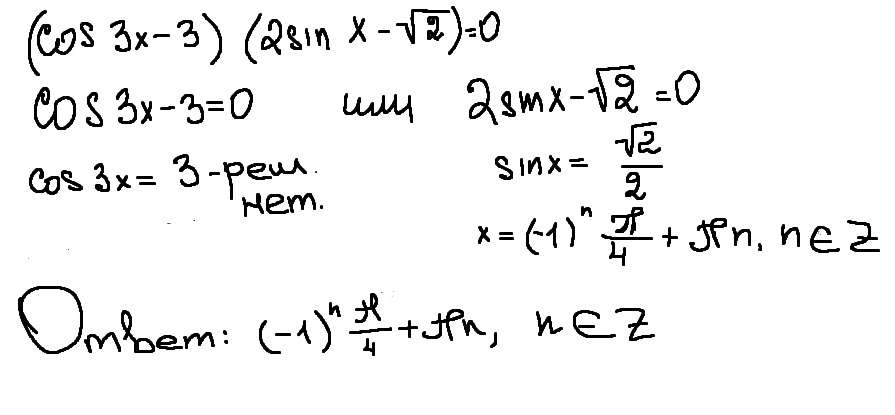 (cos 3x-3) (2sin x-√2)=0
cos 3x-3=0 или 2sinx-√2=0
cos 3x= 3-реш. нет.
sinx= √2/2
x=(-1)ⁿ π/4 + πn, n∈Z
Ответ: (-1)ⁿ π/4 +πn, n∈Z